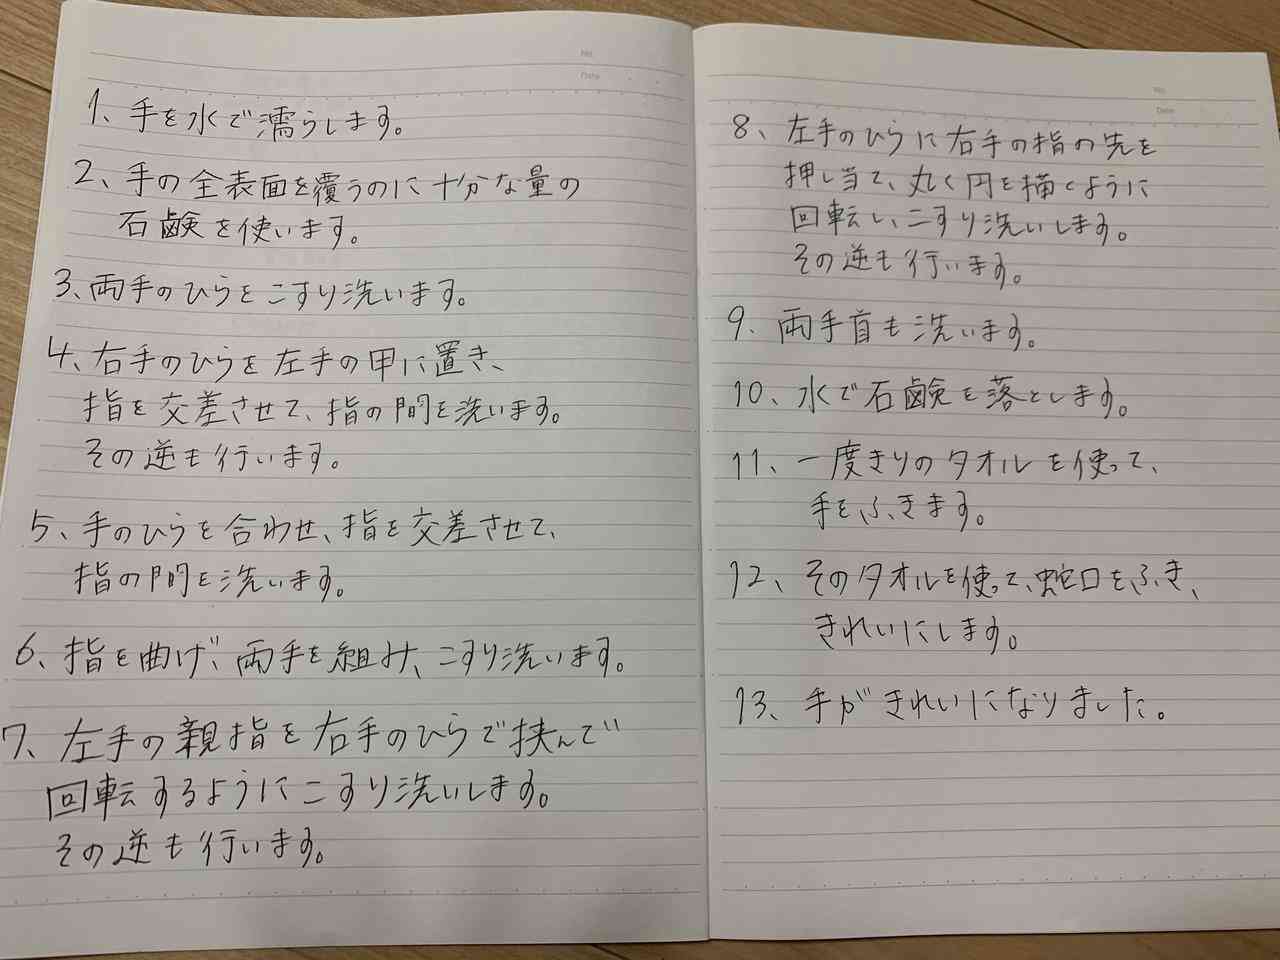 No.
Date
1、手を水で濡らします。
2、手の全表面を覆うのに十分な量の
石鹸を使います。
3、両手のひらをこすり洗います。
4、右手のひらを左手の甲に置き、
指を交差させて、指の間を洗います。
その逆も行います。
5、手のひらを合わせ、指を交差させて、
指の間を洗います。
6、指を曲げ、両手を組み、こすり洗います。
7、左手の親指を右手のひらで挟んで
回転するようにこすり洗いします。
その逆も行います。
No.
Date
8、左手のひらに右手の指の先を
押し当て、丸く円を描くように
回転し、こすり洗いします。
その逆も行います。
9、両手首も洗います。
10、水で石鹸を落とします。
11、一度きりのタオルを使って、
手をふきます。
12、そのタオルを使って、蛇口をふき、
きれいにします。
13、手がきれいになりました。